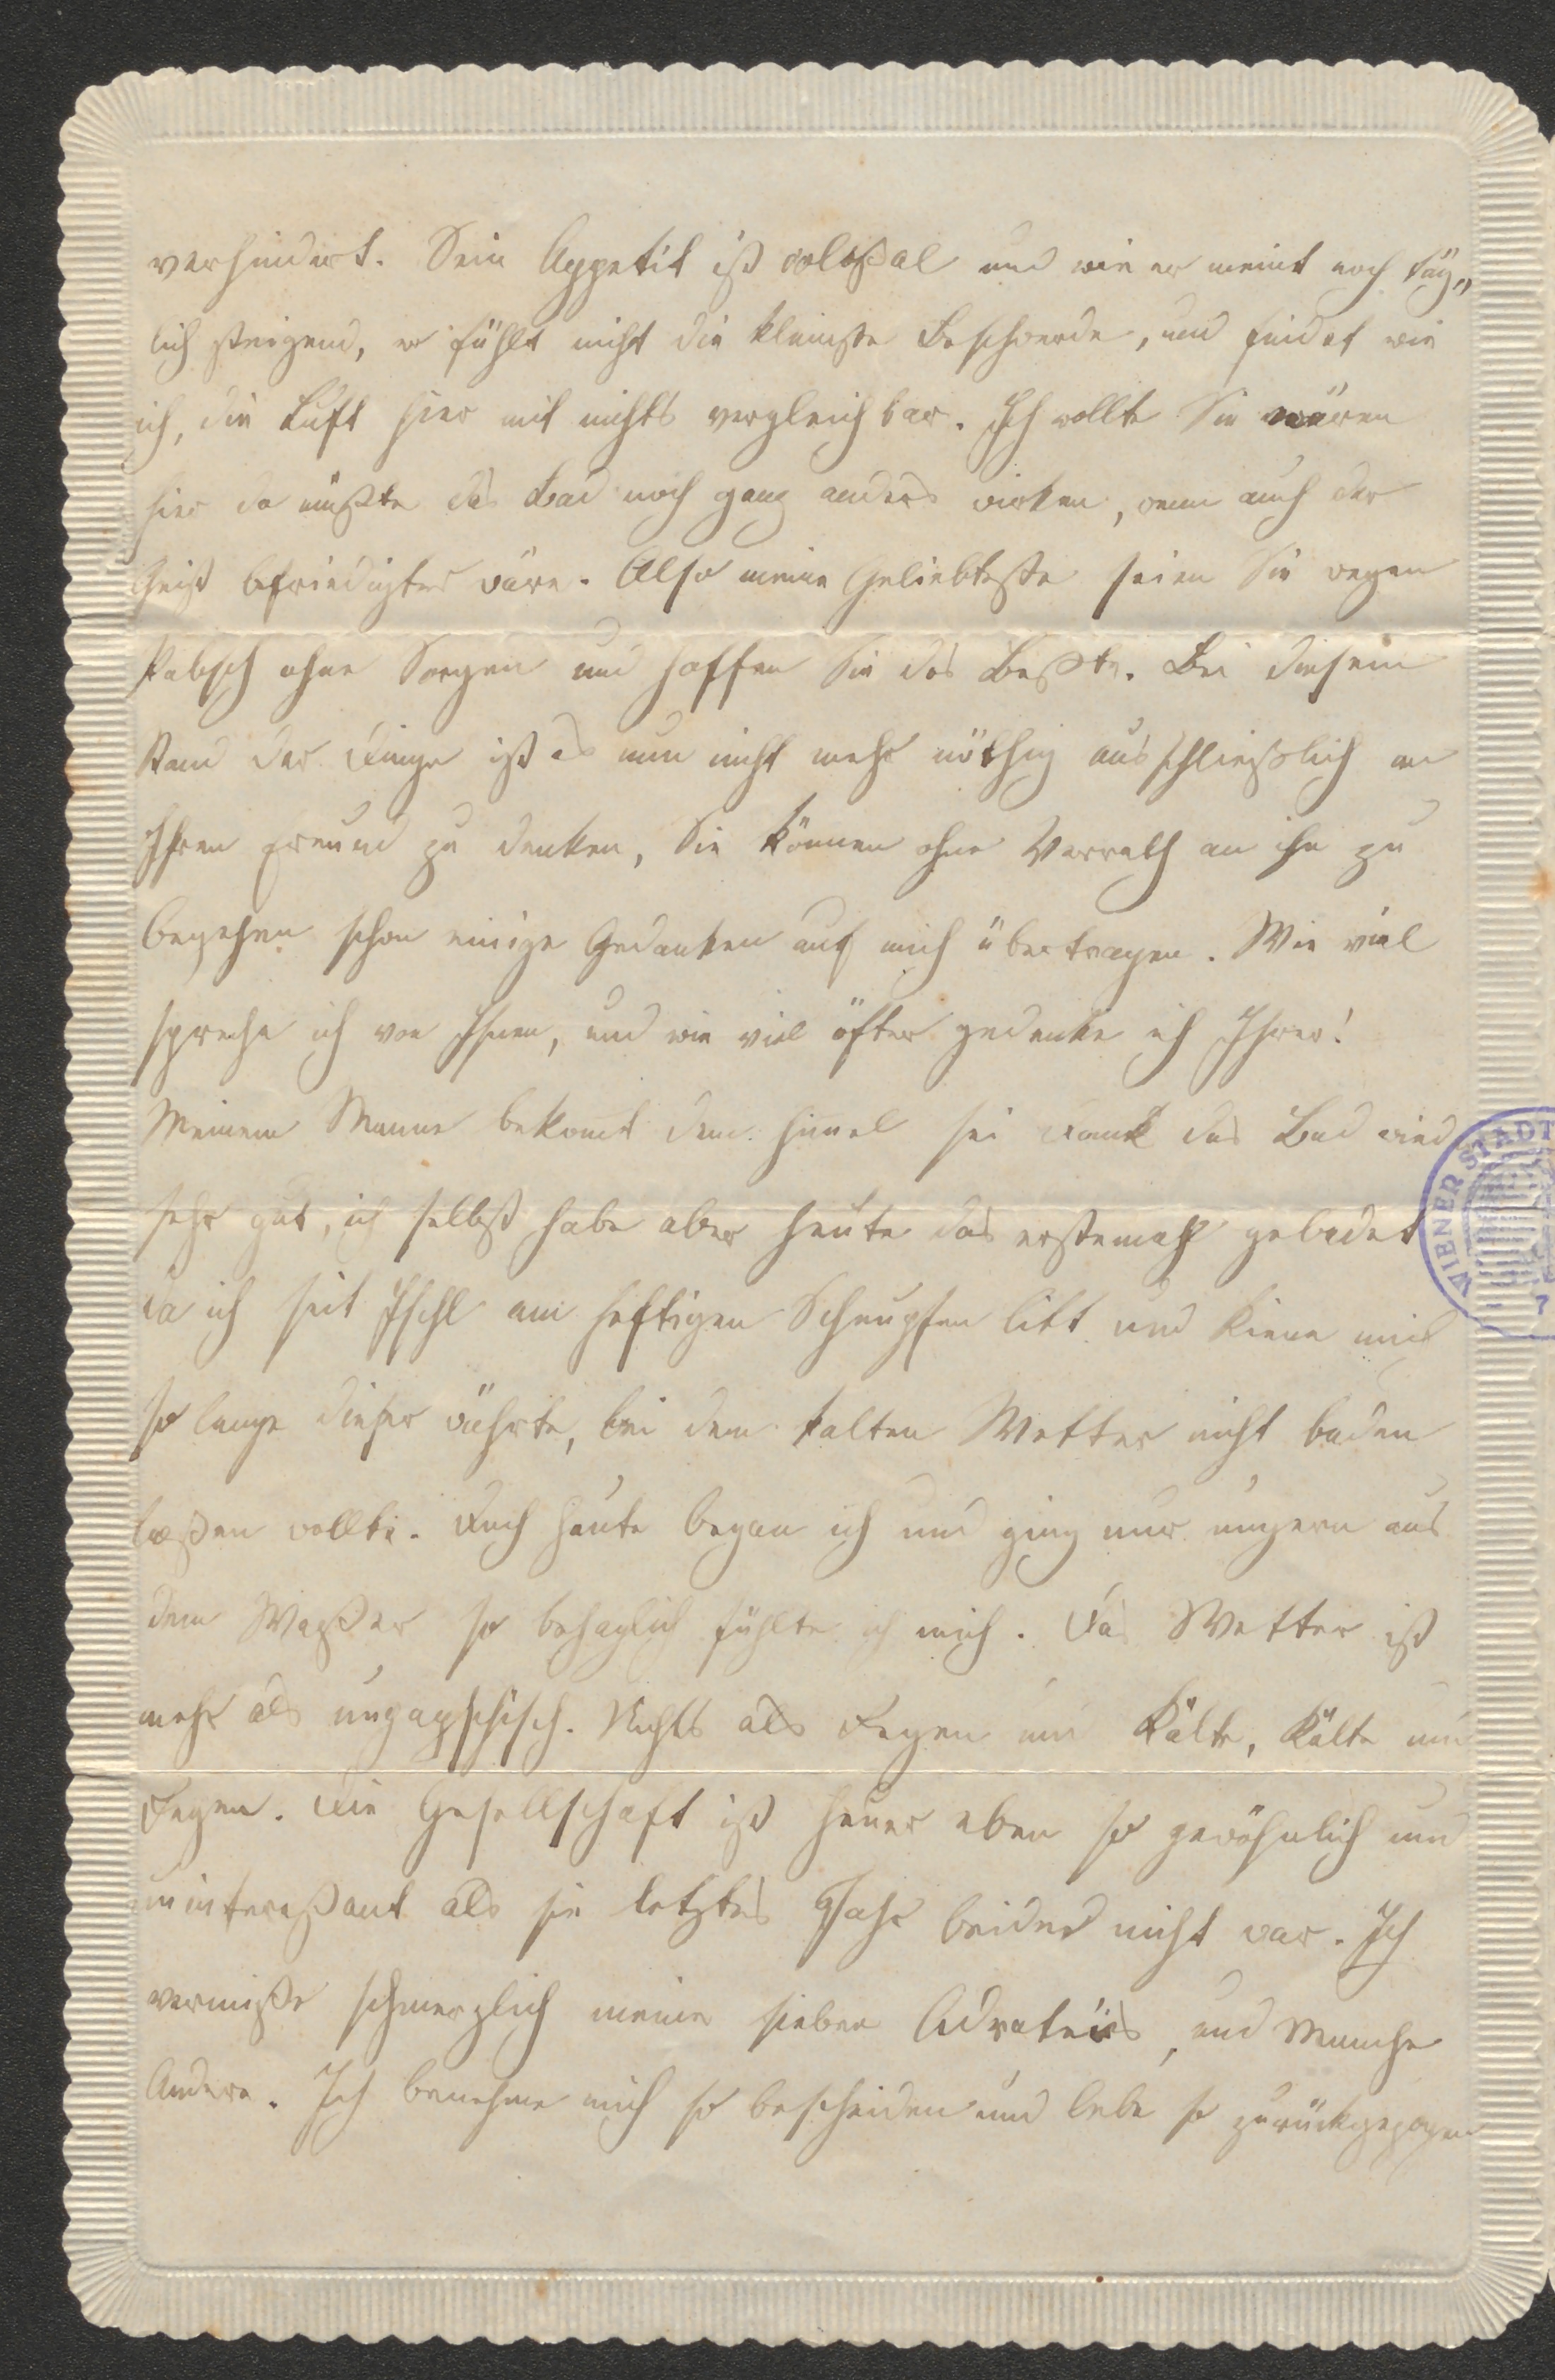 verhindert. Sein Appetit ist colossal und wie er meint noch täg„
lich steigend, er fühlt nicht die kleinste Beschwerde, und findet wie
ich, die Luft hier mit nichts vergleichbar. Ich wollte Sie wären
hier da müßte das Bad noch ganz anders wirken, wenn auch der
Geist befriedigter wäre. Also meine Geliebteste seien Sie wegen
Pabsch ohne Sorgen und hoffen Sie das Beßte. Bei diesem
Stand der Dinge ist es nun nicht mehr nöthig ausschließlich an
Ihren Freund zu denken, Sie können ohne Verrath an ihn zu
begehen schon einige Gedanken auf mich übertragen. Wie viel
spreche ich von Ihnen, und wie viel öfter gedenke ich Ihrer!
Meinem Manne bekomt dem Himel sei Dank das Bad
sehr gut, ich selbst habe aber heute das erstemahl gebadet
da ich seit Ischl am heftigen Schnupfen litt und Kiene mich
so lange dieser währte, bei dem kalten Wetter nicht baden
laßen wollte. Doch heute began ich und ging nur ungern aus
dem Waßer so behaglich fühlte ich mich. Das Wetter ist
mehr als Nichts als Regen und Kälte, Kälte und
Regen. Die Gesellschaft ist heuer eben so gewöhnlich und
uninteressant als sie letztes Jahr beides nicht war. Ich
vermiße schmerzlich meine sieben und Manche
Andere. Ich benehme mich so bescheiden und lebe so zurückgezogen
WIENER STADT
7